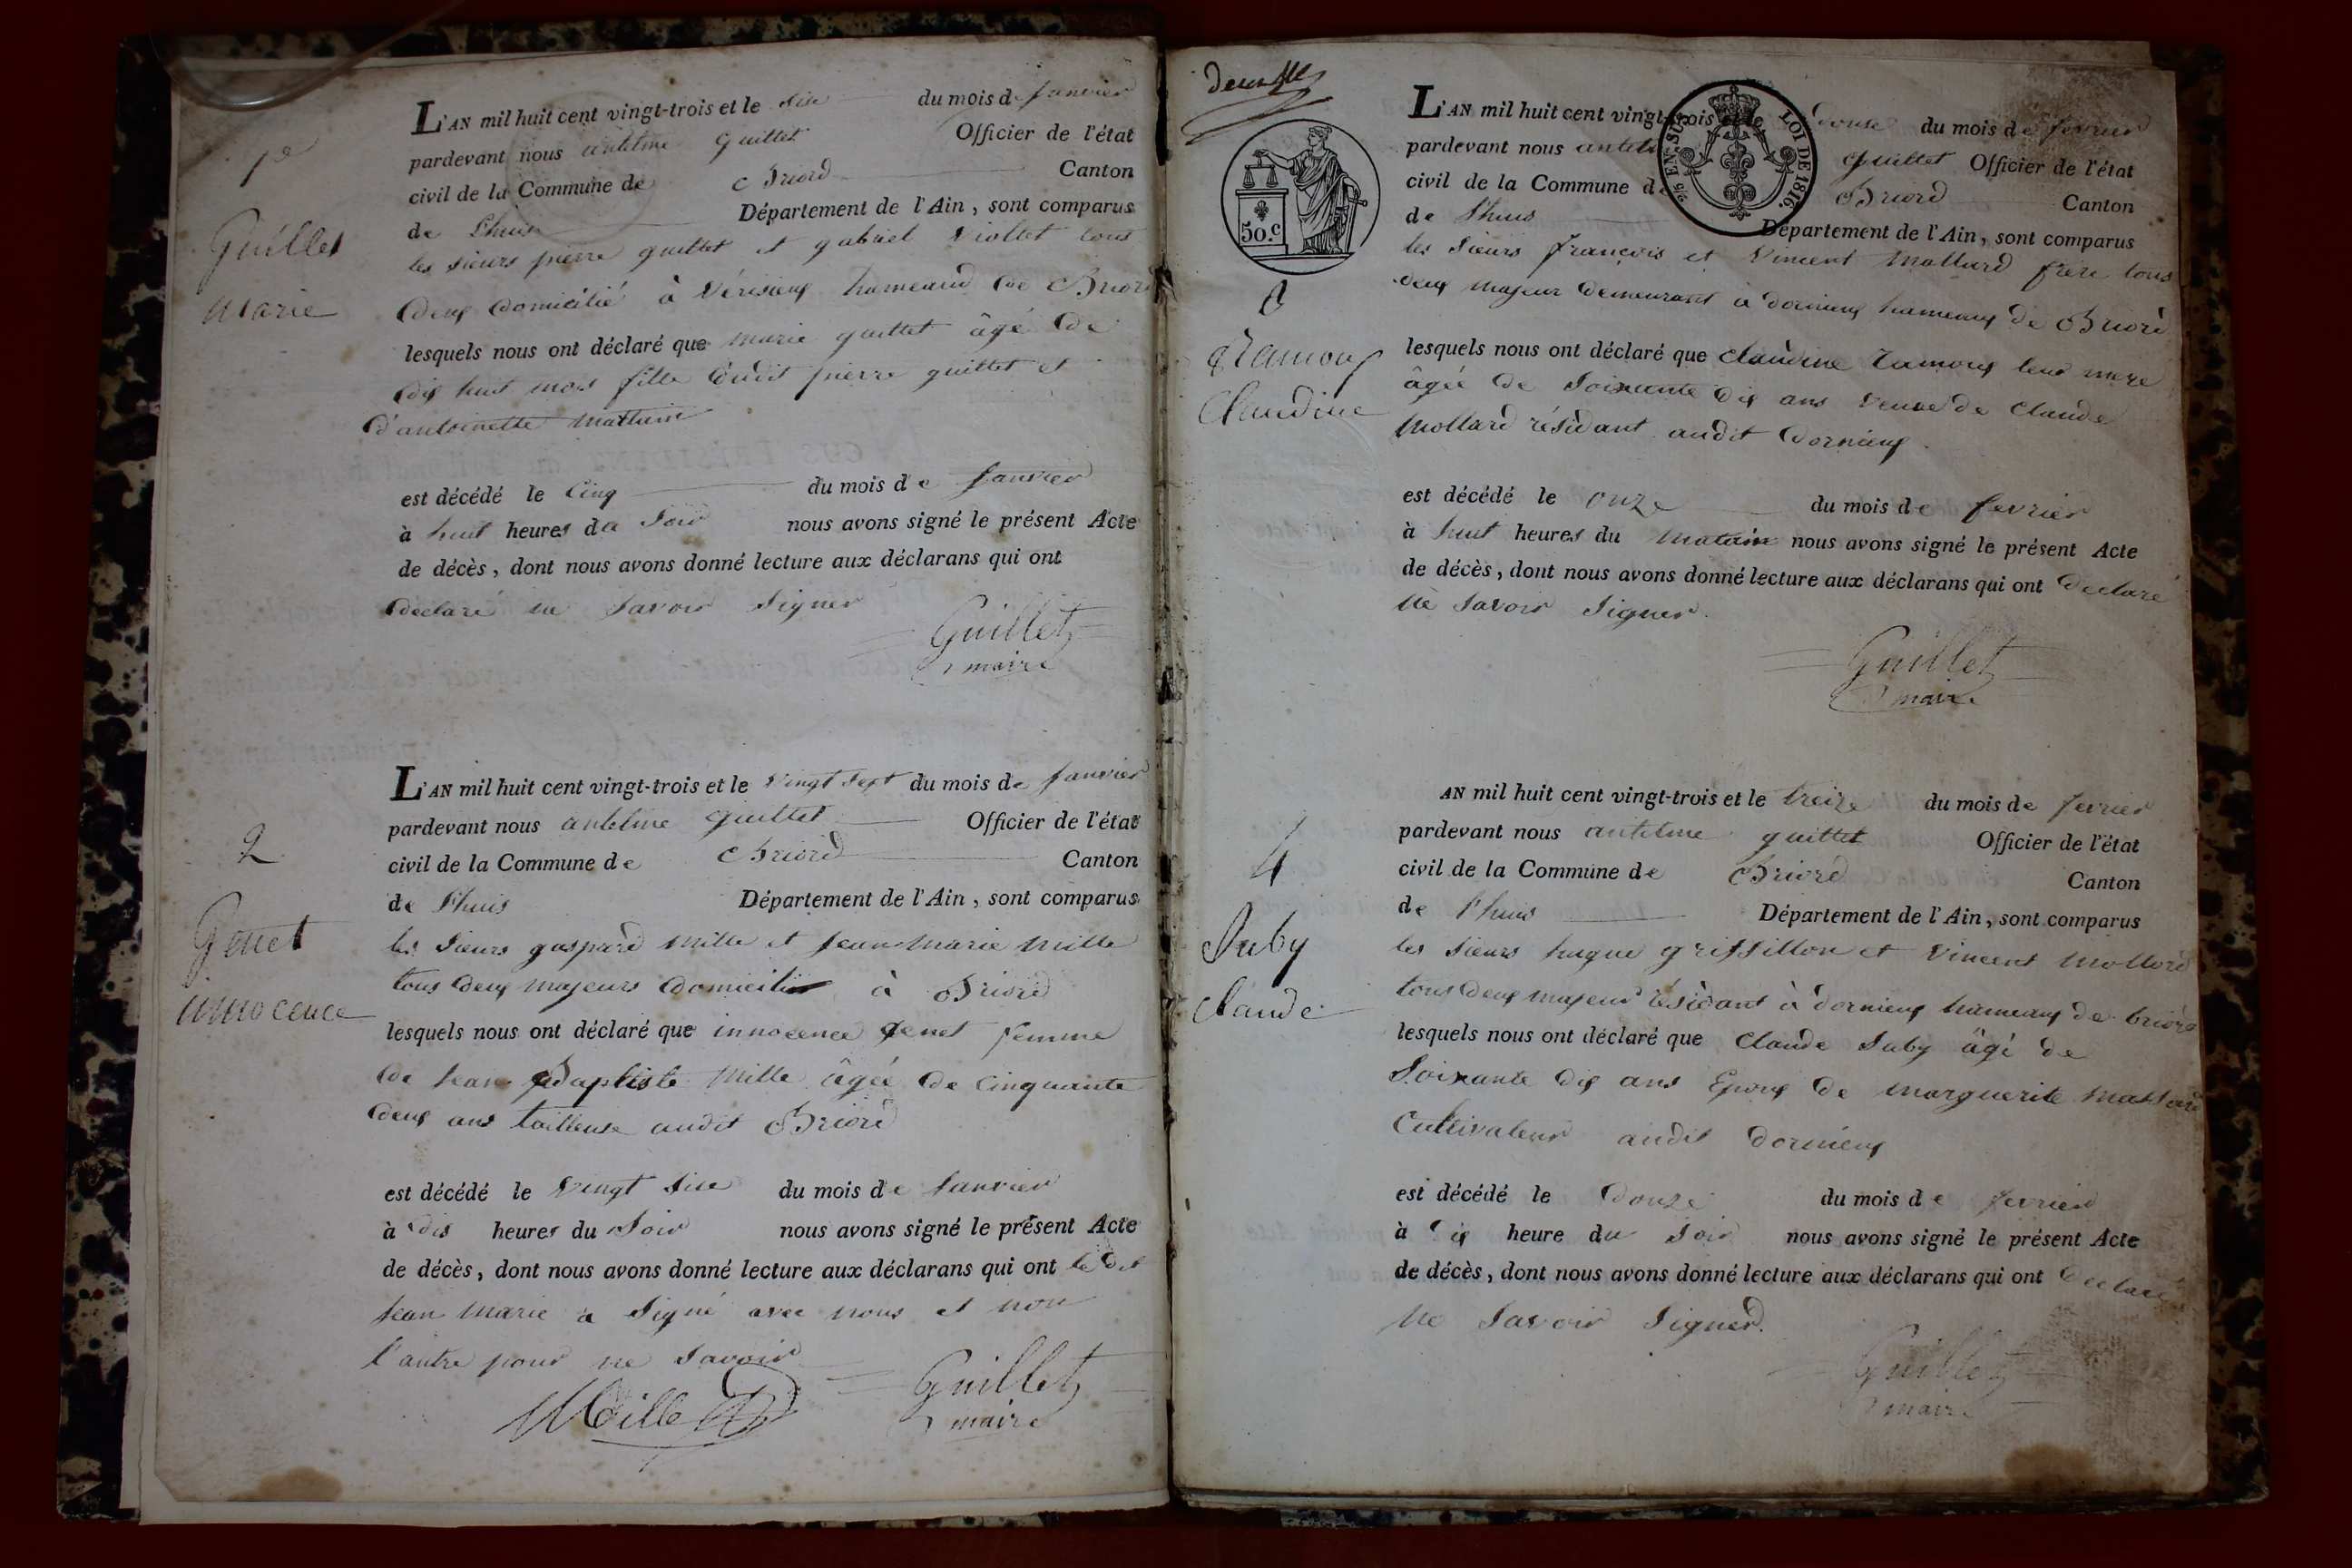 1e
Guillet
Marie
L'AN mil huit cent vingt-trois et le six du mois de janvier
pardevant nous antelme guillet Officier de l'état
civil de la Commune de Briord Canton
de Lhuis Département de l'Ain, sont comparus
les sieurs pierre guillet et gabriel Viollet tous
deux domicilié à Vérisieux hameaud de Briord
lesquels nous ont déclaré que marie guillet âgé de
dix huit mois fille dudit pierre guillet et
d'antoinette
est décédé le Cinq du mois de janvier
à huit heures du Soir nous avons signé le présent Acte
de décès, dont nous avons donné lecture aux déclarans qui ont
declaré ne savoir signer
Guillet
maire
2
Genet
innocence
L'AN mil huit cent vingt-trois et le vingt sept du mois de janvier
pardevant nous antelme guillet Officier de l'état
civil de la Commune de Briord Canton
de Lhuis Département de l'Ain, sont comparus
les sieurs gaspard Mille et jean marie Mille
tous deux majeurs domicilies à Briord
lesquels nous ont déclaré que innocence genet femme
de jean Baptiste Mille âgée de cinquante
deux ans tailleuse audit Briord
est décédé le vingt six du mois de janvier
à dix heures du Soir nous avons signé le présent Acte
de décès, dont nous avons donné lecture aux déclarans qui ont ledit
jean marie a signé avec nous et non
l'autre pour ne savoir
Mille Guillet
maire
50.c
2/5 EN SUS LOI DE 1816.
Ramoux
Claudine
L'AN mil huit cent vingt-trois et le douse du mois de fevrier
pardevant nous antelme guillet Officier de l'état
civil de la Commune de Briord Canton
de Lhuis Département de l'Ain, sont comparus
les sieurs françois et Vincent Mollard frere tous
deux majeur demeurant à dornieux hameaux de Briord
lesquels nous ont déclaré que claudine ramoux leur mere
âgée de soixante dix ans veuve de claude
Mollard résidant audit dornieux.
est décédé le onze du mois de fevrier
à huit heures du matain nous avons signé le présent Acte
de décès, dont nous avons donné lecture aux déclarans qui ont declaré
ne savoir signer.
Guillet
maire
4
Suby
Claude
AN mil huit cent vingt-trois et le treize du mois de fevrier
pardevant nous antelme guillet Officier de l'état
civil de la Commune de Briord Canton
de Lhuis Département de l'Ain, sont comparus
les sieurs hugue griffillon et Vincent Mollard
tous deux majeur résidant à dornieux hameaux de briord
lesquels nous ont déclaré que Claude Suby âgé de
soixante dix ans Epoux de marguerite
Cultivateur audit dornieux
est décédé le douze du mois de fevrier
à dix heure du soir nous avons signé le présent Acte
de décès, dont nous avons donné lecture aux déclarans qui ont declaré
ne savoir signer.
Guillet
maire